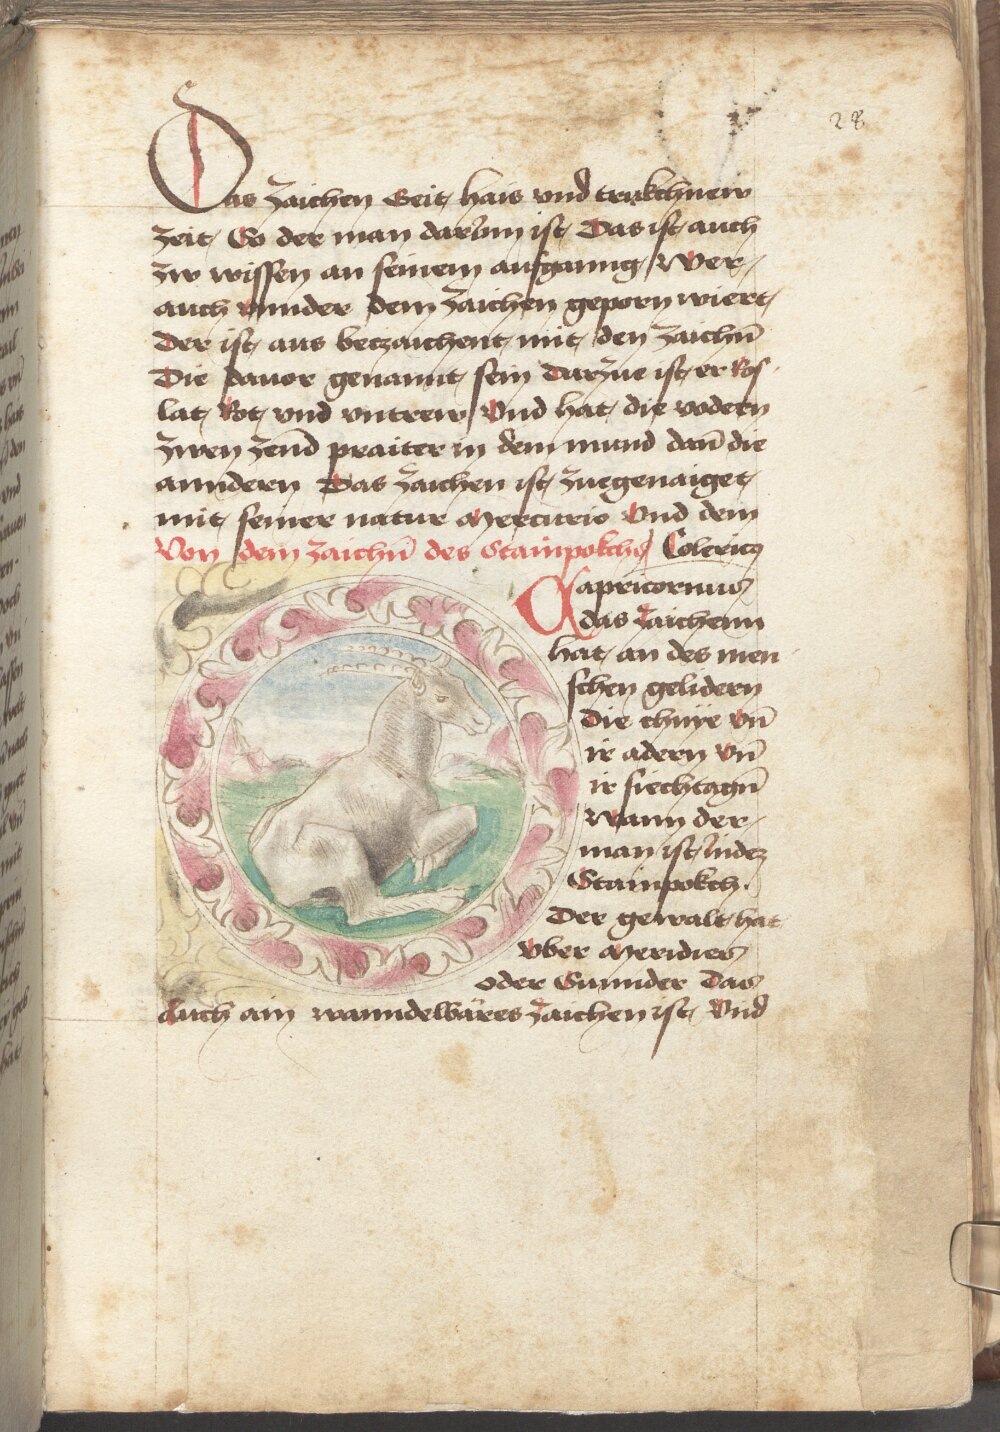 28
Das zaichen Geit hais vnd trukchnew
zeit So der man darbm ist Das ist auch
zw wissen an seinem aufganng Wer
auch vnnder dem zaichen geporn wiert
Der ist aus beczaichent mit den zaichn̄
Die dauor genannt sein Darzue ist er Ros
lat Rot vnd vntrew Vnd hat die vodern
zwen zend praiter in dem mund dan̄ die
anndern Das zaichen ist zuegenaiget
mit seiner natur Mercurio Vnd dem
Von dem zaichn̄ des Stainpokchs Colericꝯ
Capricornius
das zaichenn
hat an des men
schen gelidern
Die chnÿe vn̄
ir adern vn̄
ir siechtagn̄
Wann der
man ist Inder
Stainpokch.
Der gewalt hat
vber Meridies
oder Sunnder Das
Auch ain wanndelbäres zaichen ist Vnd